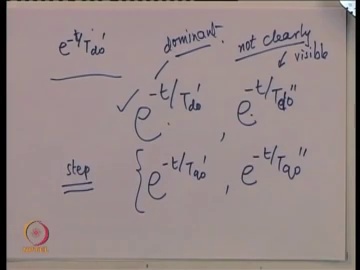 e^{-t/T_{do}'} dominant. not clearly
visible
e^{-t/T_{do}'} , e^{-t/T_{do}''}
step { e^{-t/T_{qo}'} , e^{-t/T_{qo}''}
NPTEL